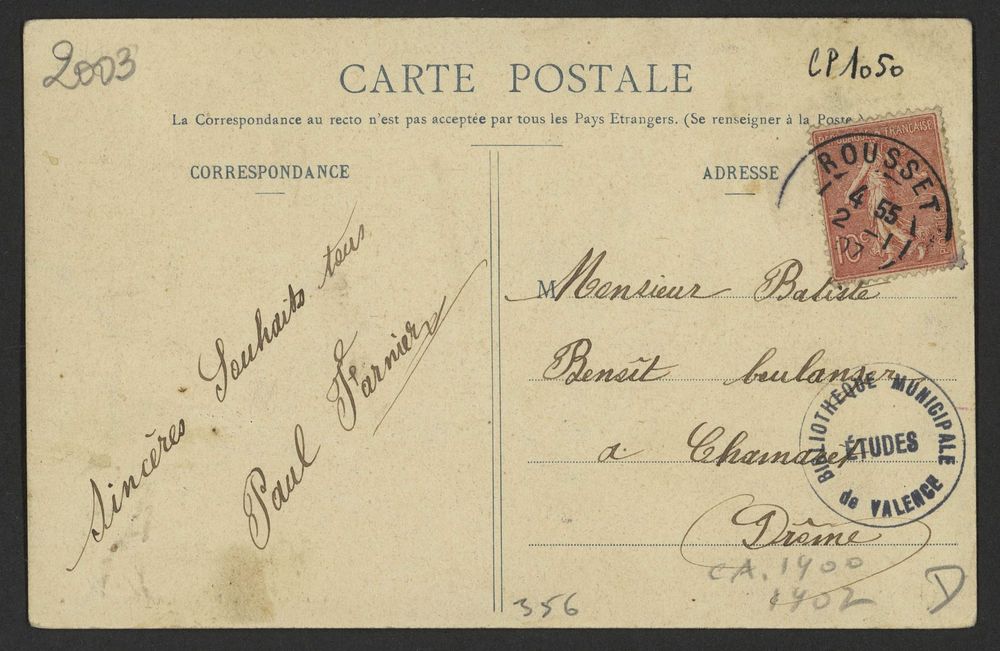 2003
CP1050
CARTE POSTALE
La Correspondance au recto n'est pas acceptée par tous les Pays Etrangers. (Se renseigner à la Poste
CORRESPONDANCE
ADRESSE
FRANÇAISE
10c
ROUSSET
4 55
2 -1
Sincères Souhaits tous
Paul Farnier
M Monsieur Batiste
Benoît boulanger
a Chamaret
Drôme
BIBLIOTHEQUE MUNICIPALE
ÉTUDES
de VALENCE
CA. 1900
1902
D
356